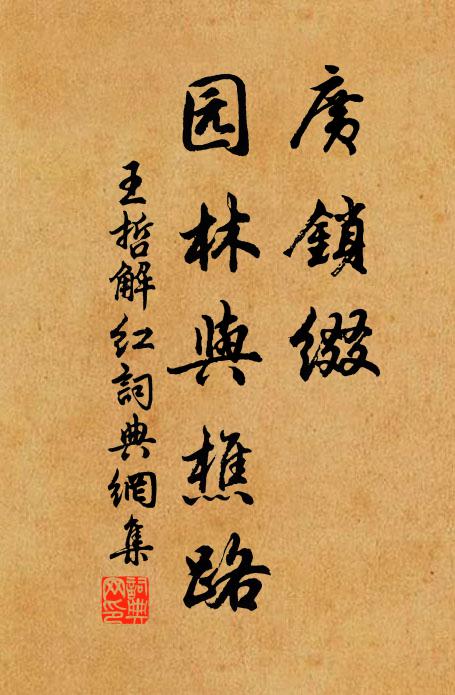 廣鎖綴
园林與樵路
王哲解红詞典網集
詞典网印